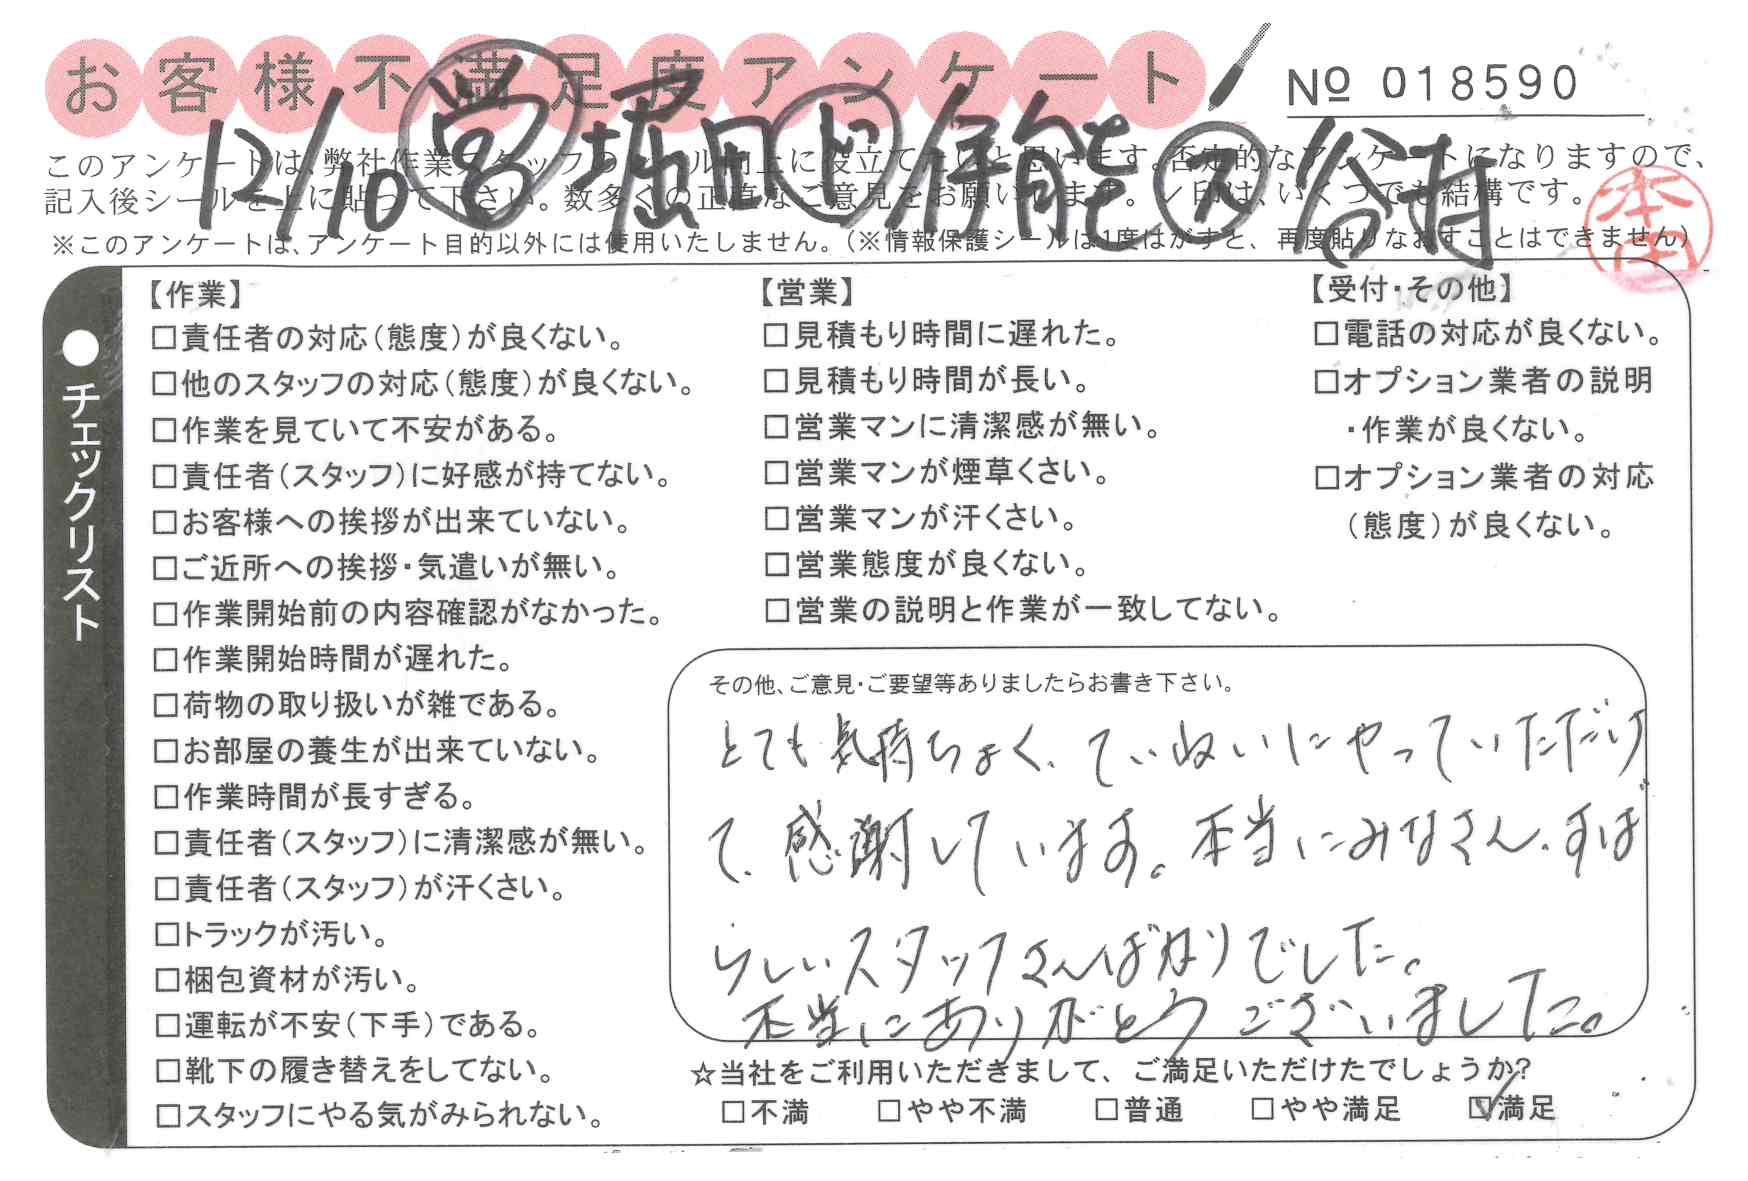 お客様不満足度アンケート
№ 018590
12/10 営 堀田 ㋪ 伊能 ㋜ 谷村
このアンケートは、弊社作業スタッフのレベル向上に役立てたいと思います。否定的なアンケートになりますので、
記入後シールを上に貼って下さい。数多くの正直なご意見をお願いします。✓印は、いくつでも結構です。
※このアンケートは、アンケート目的以外には使用いたしません。(※情報保護シールは1度はがすと、再度貼りなおすことはできません)
本田
●チェックリスト
【作業】
□責任者の対応(態度)が良くない。
□他のスタッフの対応(態度)が良くない。
□作業を見ていて不安がある。
□責任者(スタッフ)に好感が持てない。
□お客様への挨拶が出来ていない。
□ご近所への挨拶・気遣いが無い。
□作業開始前の内容確認がなかった。
□作業開始時間が遅れた。
□荷物の取り扱いが雑である。
□お部屋の養生が出来ていない。
□作業時間が長すぎる。
□責任者(スタッフ)に清潔感が無い。
□責任者(スタッフ)が汗くさい。
□トラックが汚い。
□梱包資材が汚い。
□運転が不安(下手)である。
□靴下の履き替えをしてない。
□スタッフにやる気がみられない。
【営業】
□見積もり時間に遅れた。
□見積もり時間が長い。
□営業マンに清潔感が無い。
□営業マンが煙草くさい。
□営業マンが汗くさい。
□営業態度が良くない。
□営業の説明と作業が一致してない。
【受付・その他】
□電話の対応が良くない。
□オプション業者の説明
・作業が良くない。
□オプション業者の対応
(態度)が良くない。
その他、ご意見・ご要望等ありましたらお書き下さい。
とても気持ちよく、ていねいにやっていただけ
て、感謝しています。本当にみなさん、すば
らしいスタッフさんばかりでした。
本当にありがとうございました。
☆当社をご利用いただきまして、ご満足いただけたでしょうか?
□不満 □やや不満 □普通 □やや満足 ☑満足